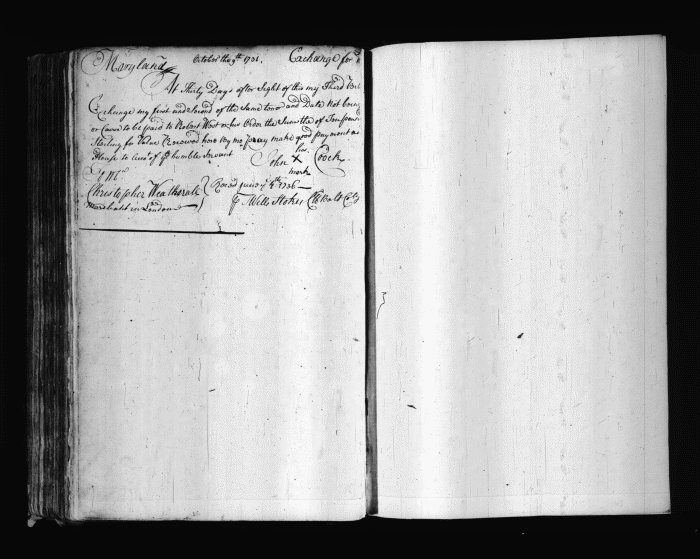 Maryland October the 9th 1731. Exchange for
At Thirty Days after Sight of this my Third
Exchange my first and Second of the Same tenor and Date not being
or Cause to be paid to Robert West or his Order the Sum of
Starling for Value Received how by me pray make good payment as
Please to Accot of yr humble Servant
his
John X Cock
mark
To Mr
Christopher Weatherall Record June ye 4th 1736
Marchatt in London p Wells Stokes Clk Balt Coty